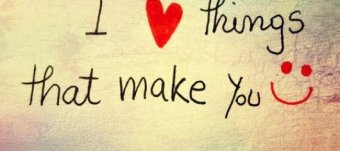 I ❤ things
that make you